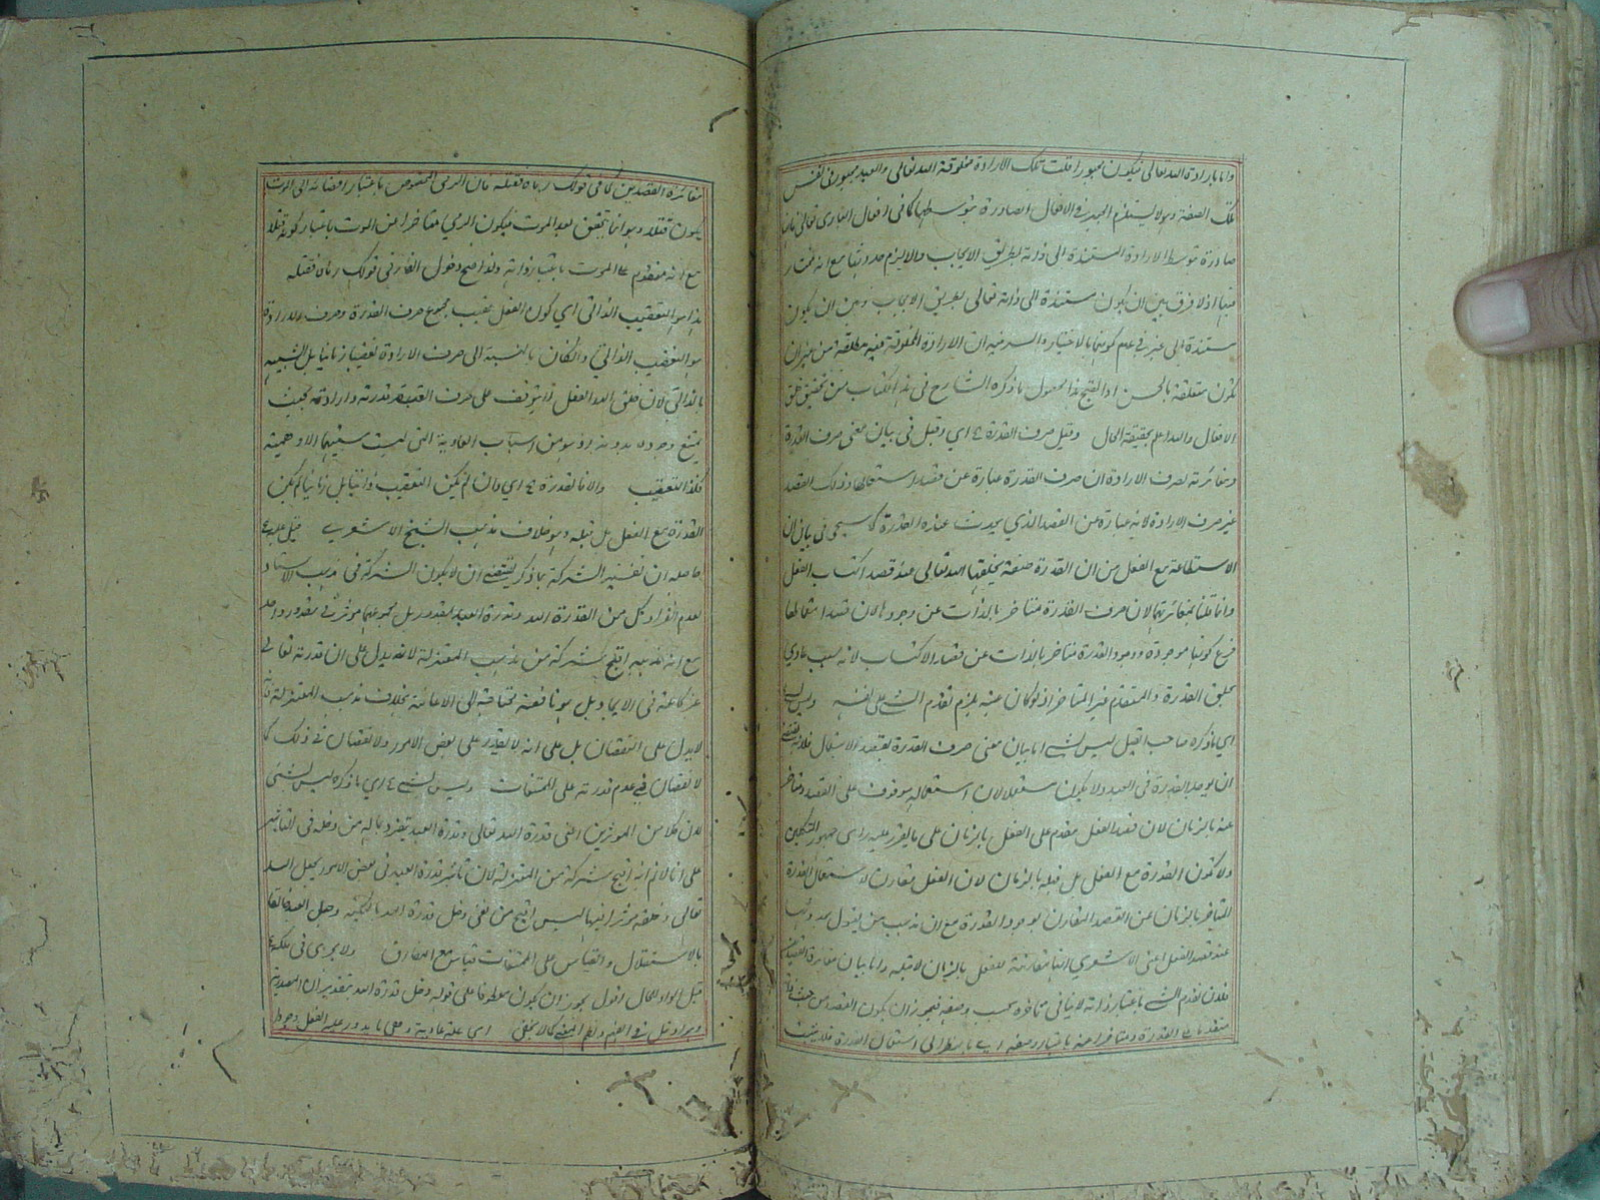 واما بارادة الله تعالى فيكون مجبورا قلت تلك الارادة مخلوقة الله تعالى والعبد مجبور في نفس
تلك الصفة وهو لا يستلزم الجبر في الافعال الصادرة بتوسطها كما في افعال الباري تعالى فان
صادرة بتوسط الارادة المستندة الى ذاته بطريق الايجاب والا لزم حدوثها مع انه مختار
فيها اذ لا فرق بين ان يكون مستندة الى ذاته تعالى بطريق الايجاب وبين ان يكون
مستندة الى غيره في عدم كونها بالاختيار والسر فيه ان الارادة المخلوقة فيه مطلقة من غير ان
تكون متعلقة بالحسن او القبح هذا محصول ما ذكره الشارح في هذا الكتاب من تحقيق خلق
الافعال والله اعلم بحقيقة الحال وقيل صرف القدرة ع اي وقيل في بيان معنى صرف القدرة
ومغائرته لصرف الارادة ان صرف القدرة عبارة عن قصد استعمالها وذلك القصد
غير صرف الارادة لانه عبارة عن القصد الذي يحدث عنده القدرة كما سيجئ في بيان ان
الاستطاعة مع الفعل من ان القدرة صفة يخلقها الله تعالى عند قصد اكتساب الفعل
وانما قلنا بمغائرتهما لان صرف القدرة متأخر بالذات عن وجودها لان قصد استعمالها
فرع كونها موجودة ووجود القدرة متأخر بالذات عن قصد الاكتساب لانه سبب عادي
لخلق القدرة والمتقدم غير المتأخر اذ لو كان عينه يلزم تقدم الشئ على نفسه وليس بشئ
اي ما ذكره صاحب القيل ليس بشئ اما بيان معنى صرف القدرة بقصد الاستعمال فلانه يقتضي
ان يوجد القدرة في العبد ولا يكون مستعملا لان استعماله موقوف على القصد ومتأخر
عنه بالزمان لان قصد الفعل مقدم على الفعل بالزمان على ما تقرر عليه راى جمهور المتكلمين
ولا تكون القدرة مع الفعل بل قبله بالزمان لان الفعل مقارن لاستعمال القدرة
المتأخر بالزمان عن القصد المقارن لوجود القدرة مع ان مذهب من يقول بحدوثها
عند قصد الفعل اعني الاشعري انها مقارنة للفعل بالزمان لا قبله واما بيان مغائرة القصدين
فلان تقدم الشئ باعتبار ذاته لا ينافي تأخره بحسب وصفه فيجوز ان يكون القصد من حيث ذاته
متقدما على القدرة ومتأخرا عنه باعتبار وصفه اي بالنظر الى استعمال القدرة فلا يثبت
مغائرة القصدين كما في قولك رماه فقتله فان الرمي المخصوص باعتبار افضائه الى الموت
يكون قتلا وهو انما يتحقق بعد الموت فيكون الرمي متأخرا عن الموت باعتبار كونه قتلا
مع انه متقدم على الموت باعتبار ذاته ولذا صح دخول الفاء في قولك رماه فقتله
هذا هو التعقيب الذاتي اي كون الفعل عقيب مجموع صرف القدرة وصرف الارادة
هو التعقيب الذاتي والا لكان بالنسبة الى صرف الارادة تعقيبا زمانيا بل الشبيه
بالذاتي لان خلق الله الفعل لا يتوقف على صرف العبد قدرته وارادته بحيث
يمتنع وجوده بدونه بل هو من اسباب العادية التي ليست سببيتها الا وهمية
فكذا التعقيب والا فالقدرة ع اي فان لم يكن التعقيب ذاتيا بل زمانيا لم يكن
القدرة مع الفعل بل قبله وهو خلاف مذهب الشيخ الاشعري قيل عليه ع
حاصله ان تفسير الشركة بما ذكر يقتضي ان لا يكون الشركة في مذهب الاستاد
لعدم انفراد كل من القدرة الله وقدرة العبد بمقدور بل مجموعهما مؤثر في مقدور واحد
مع انه مذهبه اقبح شركة من مذهب المعتزلة لانه يدل على ان قدرته تعالى
غير كافية في الايجاد بل هو ناقصة محتاجة الى الاعانة بخلاف مذهب المعتزلة فانه
لا يدل على النقصان بل على انه لا يقدر على بعض الامور ولا نقصان في ذلك كما
لا نقصان في عدم قدرته على الممتنعات وليس بشئ ع اي ما ذكره ليس بشئ
لان كلا من المؤثرين اعني قدرة الله تعالى وقدرة العبد يتفرد بما له من دخله في التأثير
على انا لا نم انه اقبح شركة من المعتزلة لان تأثير قدرة العبد في بعض الامور بجعل الله
تعالى وخلقه مؤثرا فيها ليس اقبح من نفي دخل قدرة الله بالكلية وجعل العبد خالقا
بالاستقلال والقياس على الممتنعات قياس مع الفارق ولا يجري في ملكه ع
قيل الواو للحال اقول يجوز ان يكون معطوفا على قوله دخل قدرة الله بتقدير ان المصدرية